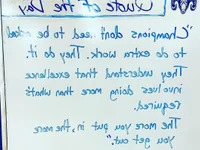 Quote of the Day
"Champions don't need to be asked
to do extra work. They do it.
They understand that excellence
involves doing more than what's
required.
The more you put in, the more
you get out."